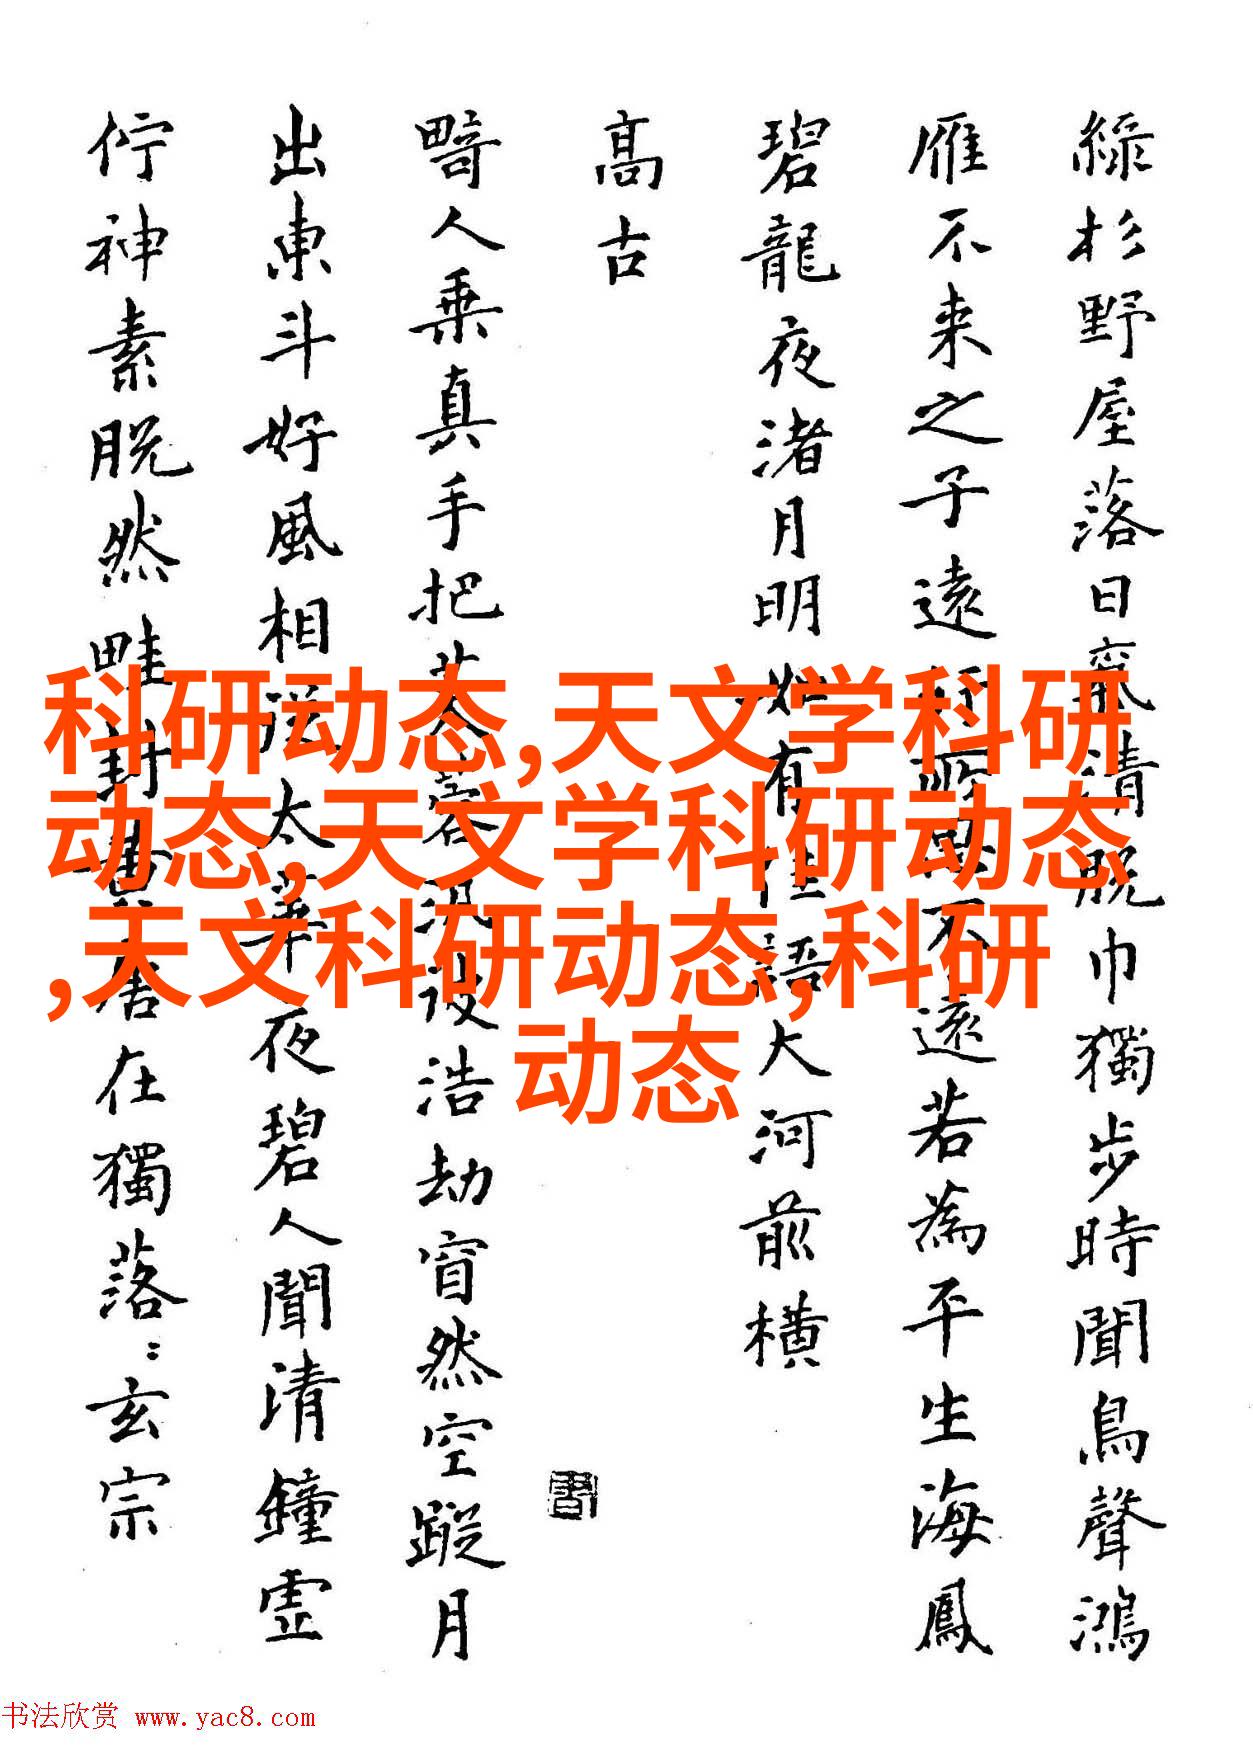 綠杉野屋落日氣清脫巾獨步時聞鳥聲鴻
雁不来之子遠行所思不遠若為平生海鳳
碧龍夜渚月明如有佳語大河前橫
髙古
畸人乘真手把芙蓉汎彼浩劫窅然空蹤月
出東斗好風相從太華夜碧人聞清鐘虛
佇神素脫然畦封黃唐在獨落〻玄宗
科研动态,天文学科研
动态,天文学科研动态
,天文科研动态,科研
动态
书法欣赏 www.yac8.com